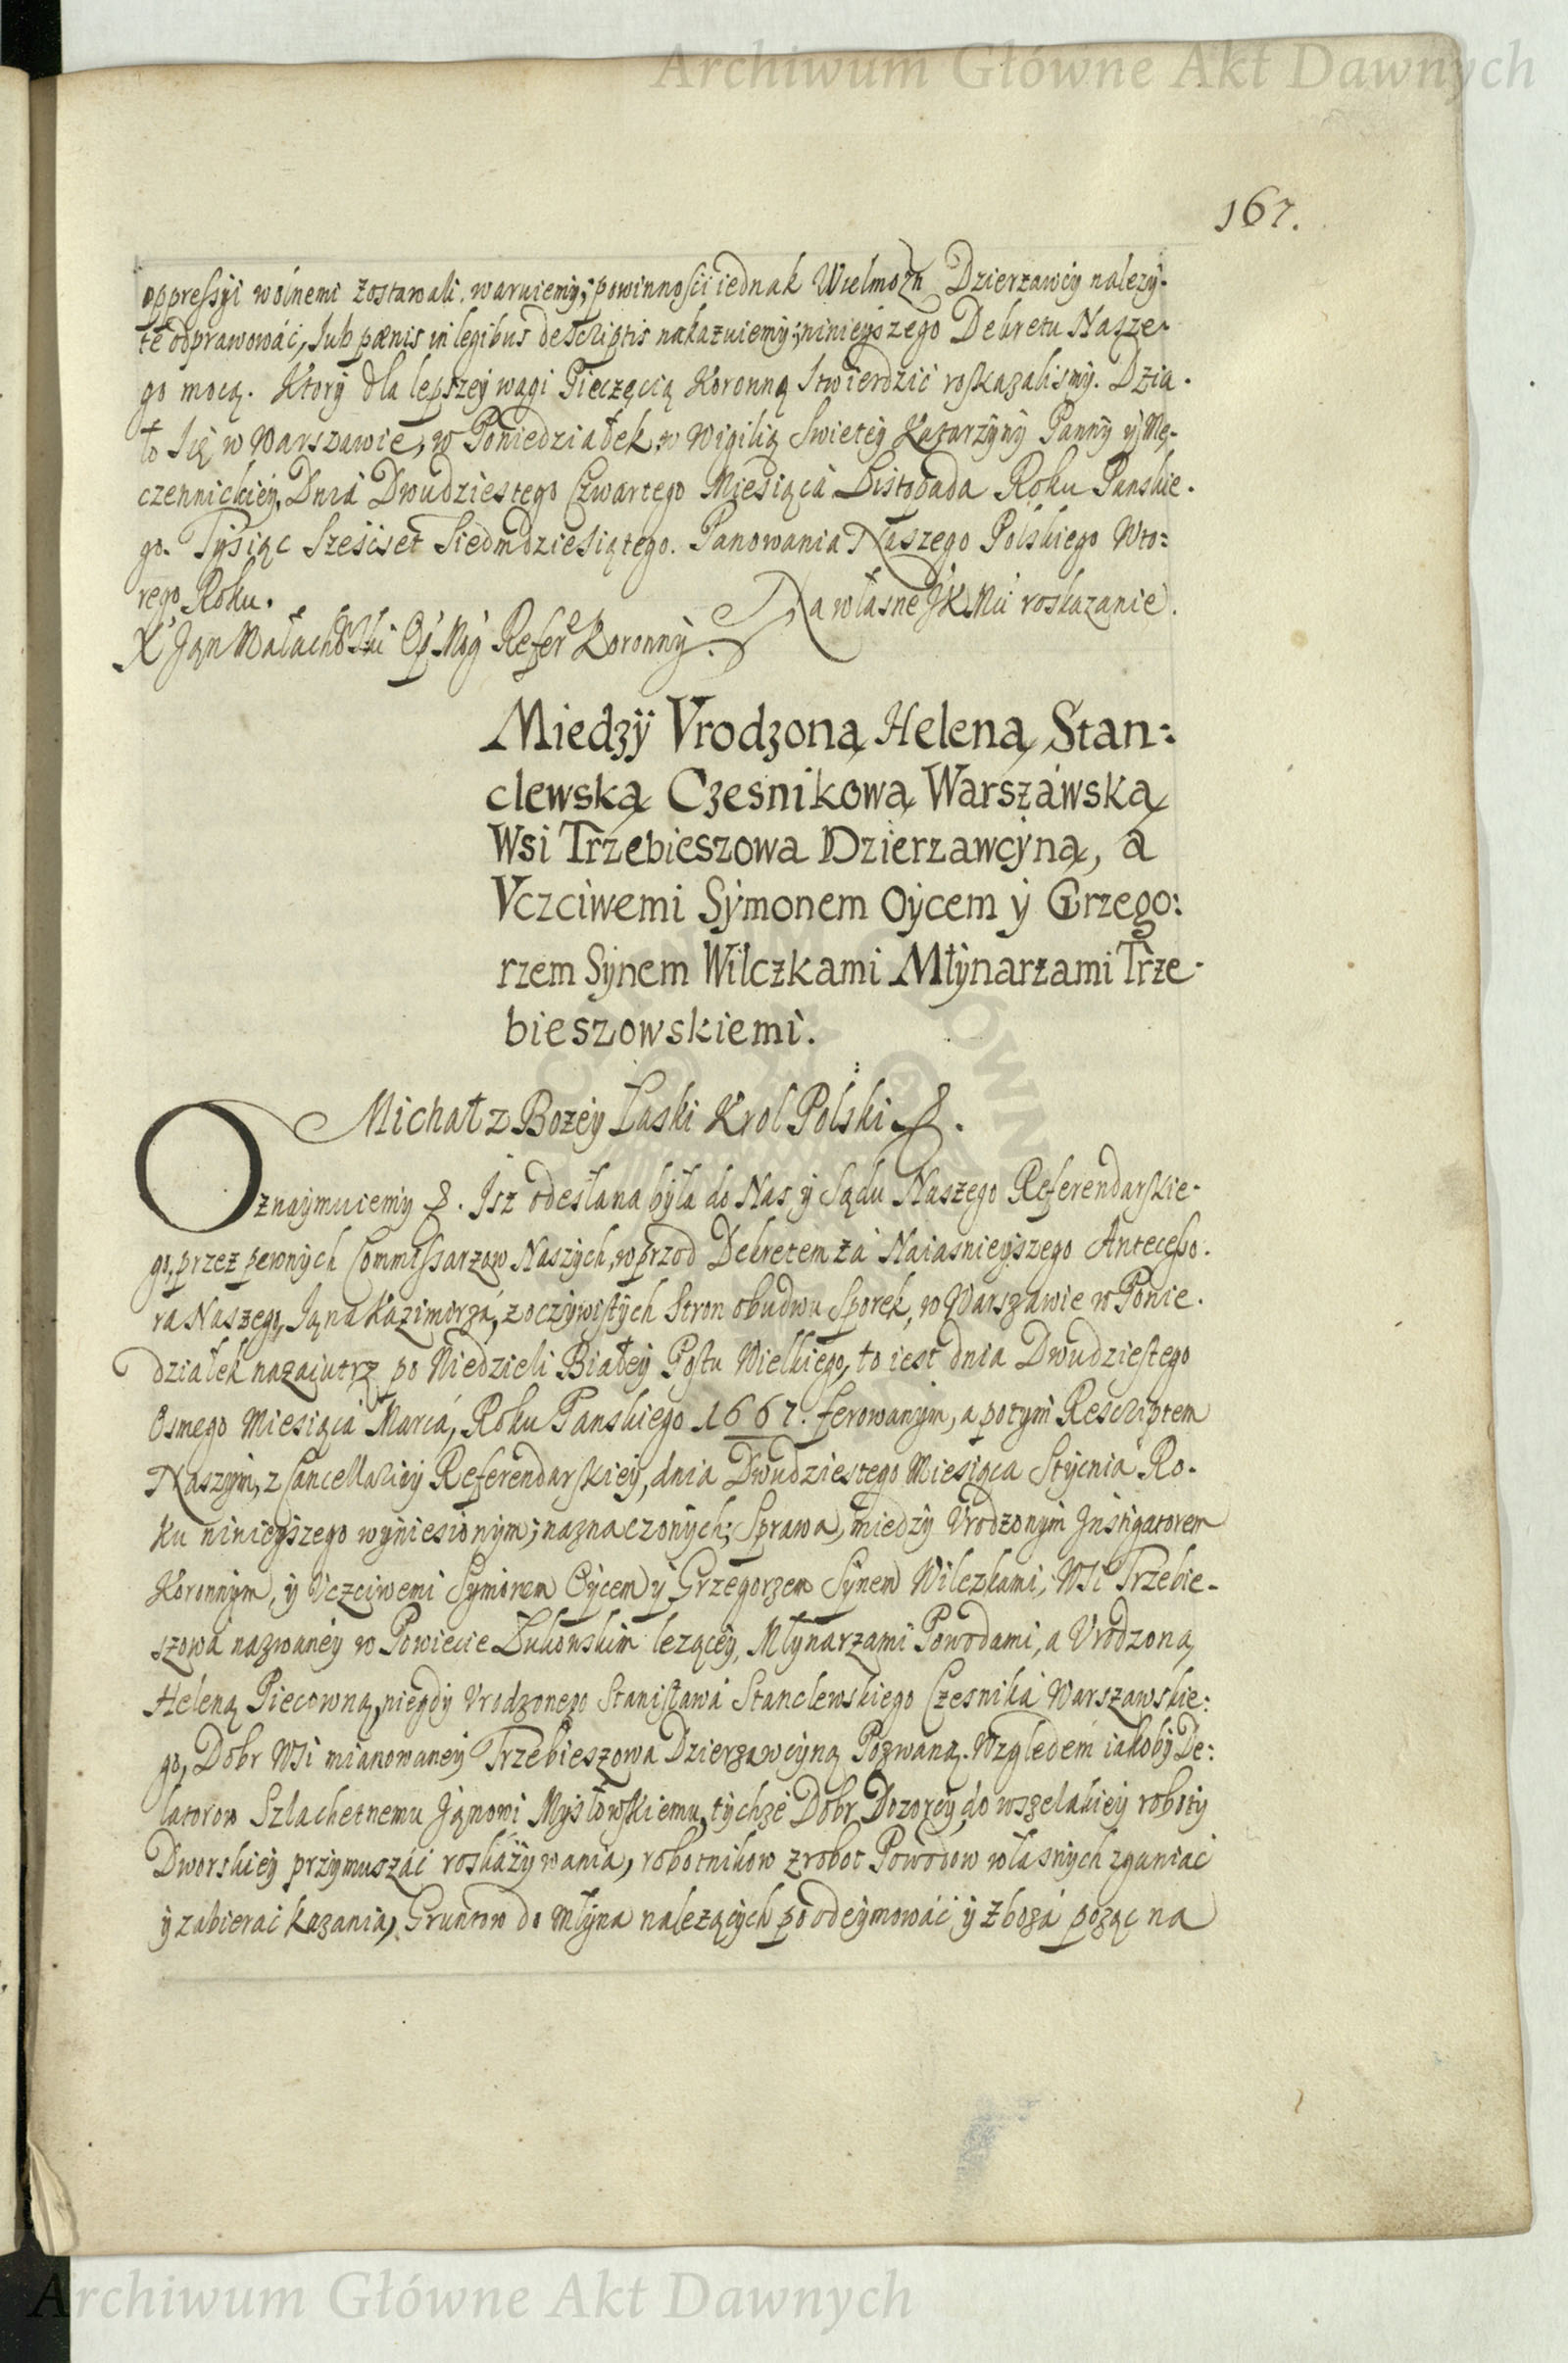 Archiwum Główne Akt Dawnych
167.
oppressyi wolnemi zostawali, waruiemy; powinnosci iednak Wielmożn Dzierżawcy nalezy-
te odprawowáć, sub pænis in legibus descriptis nakazuiemy; ninieyszego Dekretu Nasze-
go mocą. Ktory dla lepszey wagi Pieczęcią Koronną stwierdzić roskazalismy. Dzia-
ło się w Warszawie, w Poniedziałek, w Wigilią Swietey Katarzyny Panny y Mę-
czennickiey, Dniá Dwudziestego Czwartego Miesiącá Listopada Roku Panskie-
go. Tysiąc Szescset Siedmdziesiątego. Panowania Naszego Polskiego Wto=
rego Roku.
Na własne JKMći roskazanie.
X Jan Małachowski Op: Mog: Refer: Koronny.
Miedzÿ Vrodzoną Heleną Stan=
clewską Czesnikową Warszáwską
Wsi Trzebieszowa Dzierzawcyną, a
Vczciwemi Symonem Oycem y Grzego:
rzem Synem Wilczkami Młynarzami Trze-
bieszowskiemi.
Michał z Bożey Łaski Krol Polski &.
Oznaymuiemy &. Isz odesłana była do Nas y Sądu Naszego Referendarskie-
go, przez pewnych Commissarzow Naszych, wprzod Dekretem zá Naiasnieyszego Antecesso-
ra Naszego, Jana Kazimirzá, z oczywistych Stron obudwu Sporek, w Warszawie w Ponie-
działek nazaiutrz po Niedzieli Białey Postu Wielkiego, to iest dnia Dwudziestego
Osmego Miesiącá Marcá, Roku Panskiego 1667. ferowanym, a potym Rescriptem
Naszym, z Cancellariey Referendarskiey, dnia Dwudziestego Miesiąca Stycniá Ro-
ku ninieyszego wyniesionym; naznaczonych; Sprawa, miedzy Vrodzonym Instigatorem
Koronnym, y Vczciwemi Symonem Oycem y Grzegorzem Synem Wilczkami, Wsi Trzebie-
szowá nazwaney w Powiecie Łukowskim lezącey, Młynarzami Powodami, a Vrodzoną
Heleną Piecowną, niegdy Vrodzonego Stanisławá Stanclewskiego Czesniká Warszawskie:
go, Dobr Wsi mianowaney Trzebieszowa Dzierzawcyną Pozwaną. Względem iakoby De:
latorow Szlachetnemu Janowi Mysłowskiemu, tychże Dobr Dozorcy, do wszelakiey roboty
Dworskiey przymuszáć roskázywania, robotnikow z robot Powodow własnych zganiać
y zabierać kazania, Gruntow do Młyna należących poodeymowáć, y Zbozá pożąc na
Archiwum Główne Akt Dawnych